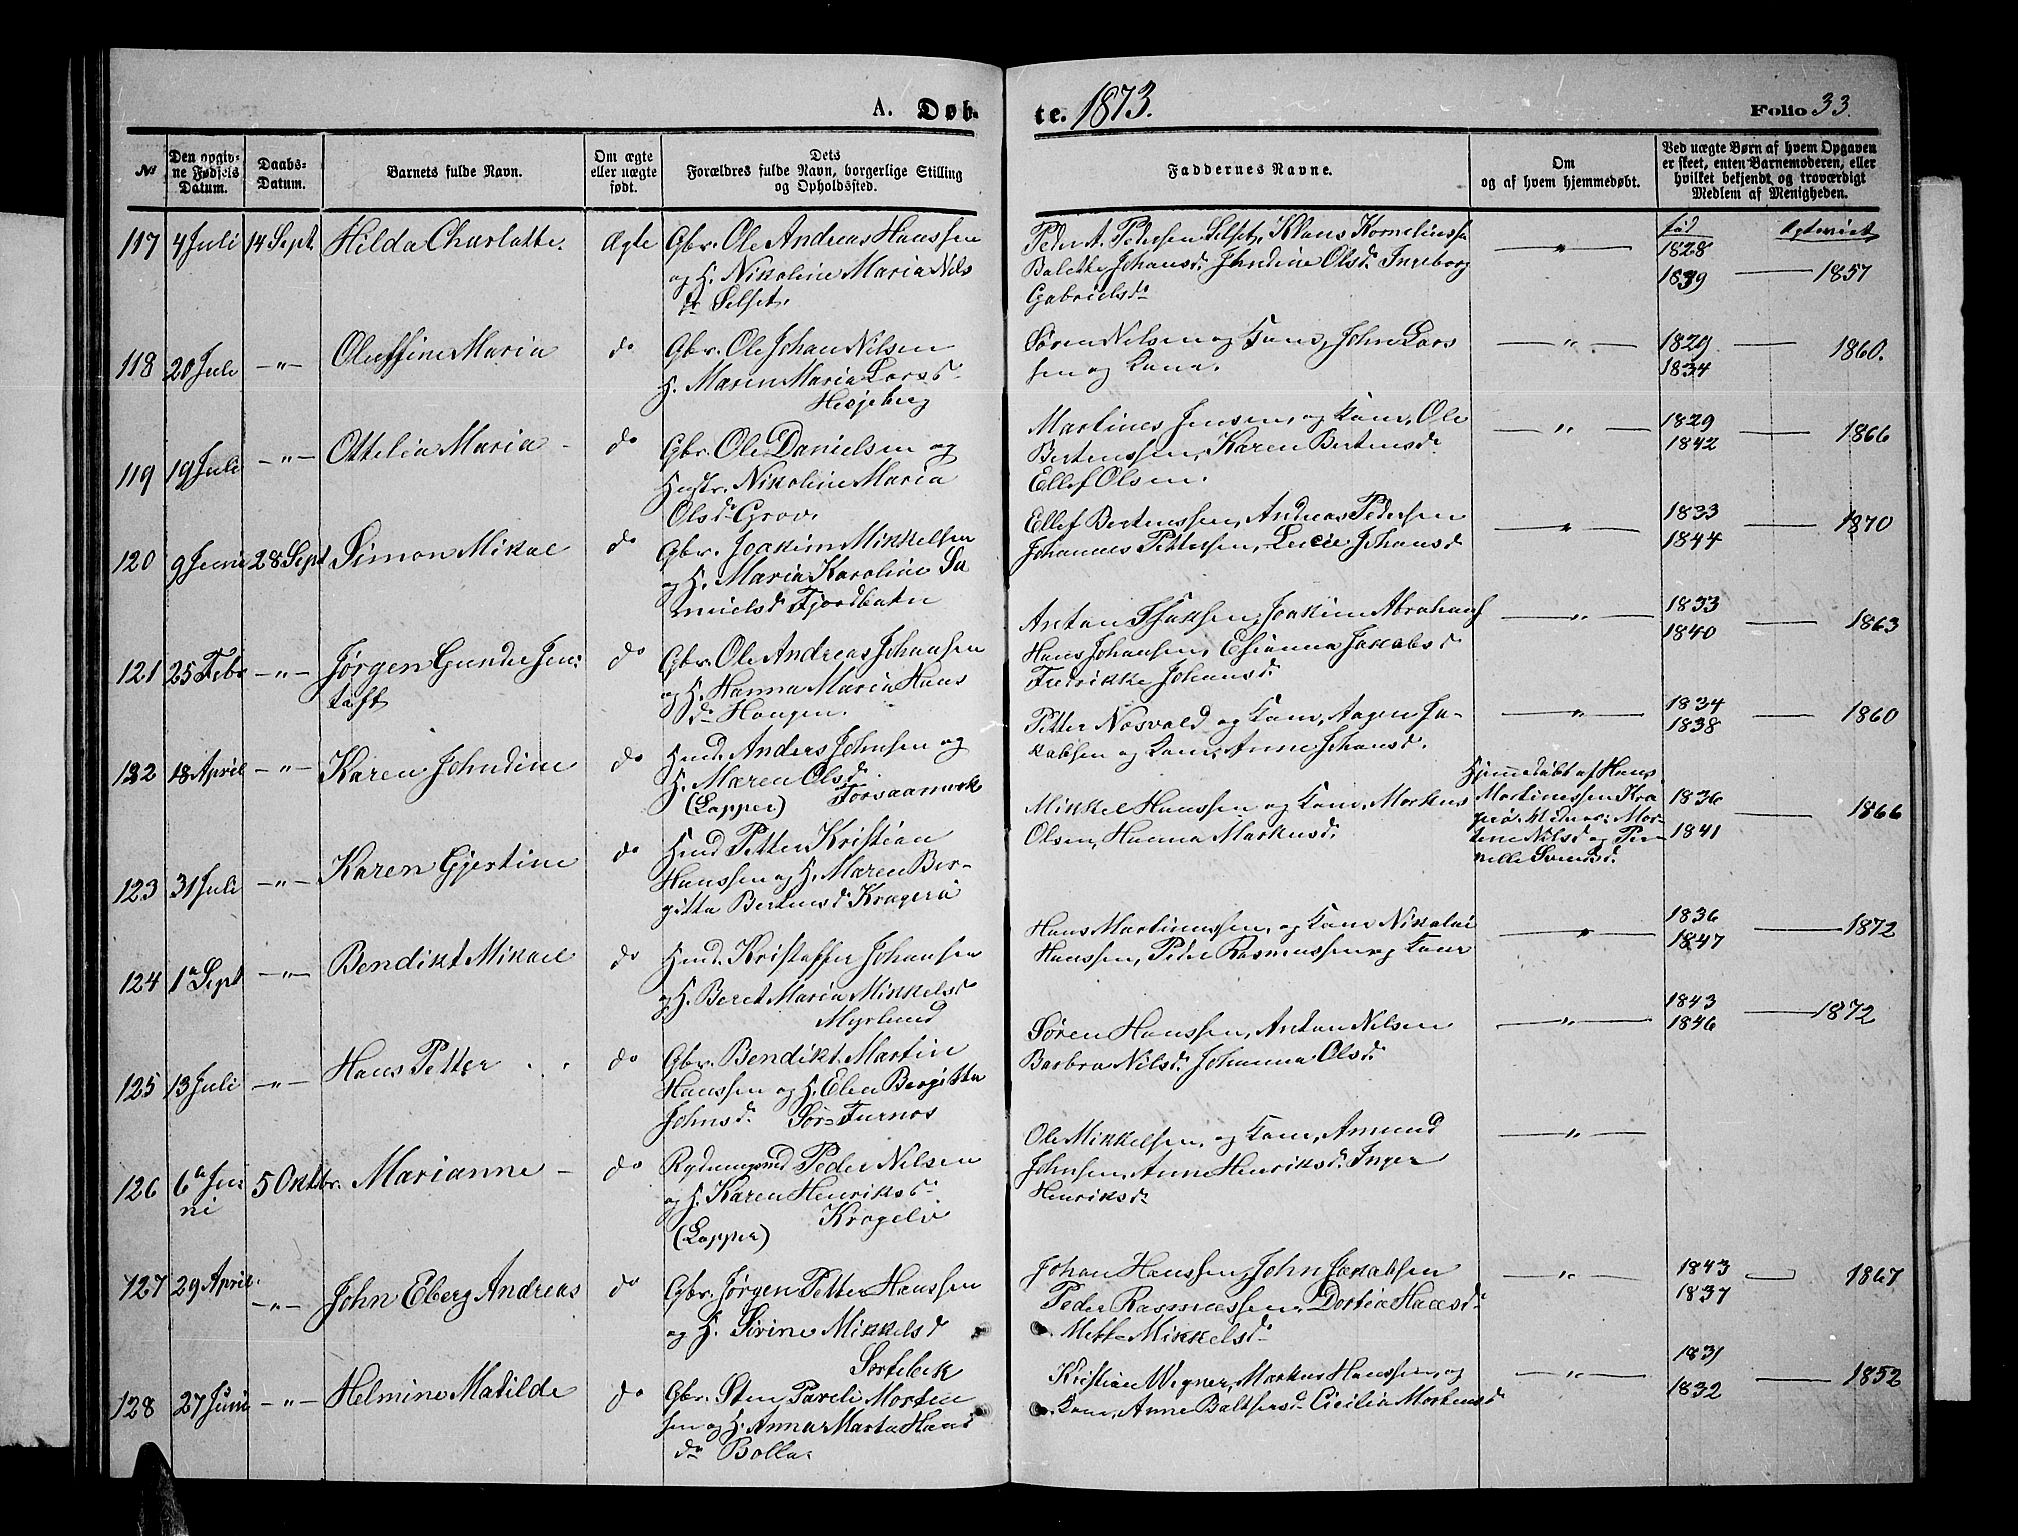 A. Døb-
te. 1873.
Folio 33.
No
Den opgiv-
ne Fødsels
Datum.
Daabs-
Datum.
Barnets fulde Navn.
Om ægte
eller uægte
født.
Dets
Forældres fulde Navn, borgerlige Stilling
og Opholdssted.
Faddernes Navne.
Om
og af hvem hjemmedøbt.
Ved uægte Børn af hvem Opgaven
er skeet, enten Barnemoderen, eller
hvilket bekjendt og troværdigt
Medlem af Menigheden.
117 4 Juli 14 Sept. Hilda Charlotte. Ægte
Gbr. Ole Andreas Hanssen
og H. Nikoline Maria Nils
dr Selset.
Peder A. Pedersen Selset, Klaus Korneliussen
Balette Johansd. Johndine Olsd. Ingeborg
Gabrielsdr
— " —
fød
1828
1839 — 1857
118 20 Juli — " — Oluffine Maria do
Gbr. Ole Johan Nilsen
H. Maren Maria Larsd.
Hesjeberg
Søren Nilsen og Kone, John Lars
sen og Kone.
— " —
1829 — 1860.
1834
119 19 Juli — " — Ottelia Maria do
Gbr. Ole Danielsen og
Hustr. Nikoline Maria
Olsdr Grov.
Martines Jensen og Kone, Ole
Bertenssen, Karen Bertensd.
Ellef Olsen.
— " —
1829
1842 — 1866
120 9 Juni 28 Sept Simon Mikal do
Gbr. Joakim Mikkelsen
og H. Maria Karoline Sa
muelsd Fjordbotn
Ellef Bertenssen, Andreas Pedersen
Johannes Pettersen, Lucie Johansd
— " —
1833
1844 — 1870
121 25 Febr — " — Jørgen Gunder Jen:
toft
do
Gbr. Ole Andreas Johansen
og H. Hanna Maria Hans
dr Haugen.
Anton Isaksen, Joakim Abrahams
Hans Johansen, Jakobsd
Fredrikke Johansd.
— " —
1833
1840 — 1863
122 18 April — " — Karen Johndine do
Hmd. Anders Johnsen og
H. Maren Olsd.
(Lapper) Forsaamark
Petter Nosvold og Kone, Aagen Ja-
kobsen og Kone, Anne Johansd.
— " —
1834
1838 — 1860
123 31 Juli — " — Karen Gjertine do
Hmd Petter Kristian
Hanssen og H. Maren Ber-
gitta Bertensd Kragerø
Mikkel Hanssen og Kone, Markus
Olsen, Hanna Markusd.
Hjemmedøbt af Hans
Martinussen Kra
gerø. Vidner: Mar
tene Nilsd og Per-
nille Svendsd.
1836
1841 — 1866
124 1a Sept — " — Bendikt Mikael do
Hmd. Kristoffer Johansen
og H. Beret Maria Mikkelsd
Myrlund
Hans Martinussen og Kone Nikolai
Hanssen, Peder Rasmussen og Kone
— " —
1836
1847 — 1872
125 13 Juli — " — Hans Petter do
Gbr. Bendikt Martin
Hanssen og H. Elen Bergitta
Johnsd. Sør-Furnes
Søren Hanssen, Anton Nilsen
Barbra Nilsd. Johanna Olsd.
— " —
1843
1846 — 1872
126 6a Ju:
ni
5 Oktbr. Marianne do
Rydningsmd Peder Nilsen
og H. Karen Henriksd.
(Lapper) Kragelv
Ole Mikkelsen og Kone, Amund
Johnsen, Anne Henriksd. Inger
Henriksdr
— " —
127 29 April. — " — John Eberg Andreas do
Gbr. Jørgen Petter Hanssen
og H. Sirine Mikkelsd
Sortebek
Johan Hanssen, John Jakobsen
Peder Rasmussen, Dortea Hansd
Mette Mikkelsdr
— " —
1843 — 1867
1837
128 27 Juni — " — Helmine Matilde do
Gbr. Sten Paveli Morten
sen og H. Anna Marta Hans
dr Bolla.
Kristian Wigner, Markus Hanssen og
Kone, Anne Baltsersd. Cicilia Mortensd
— " —
1831
1832 — 1852